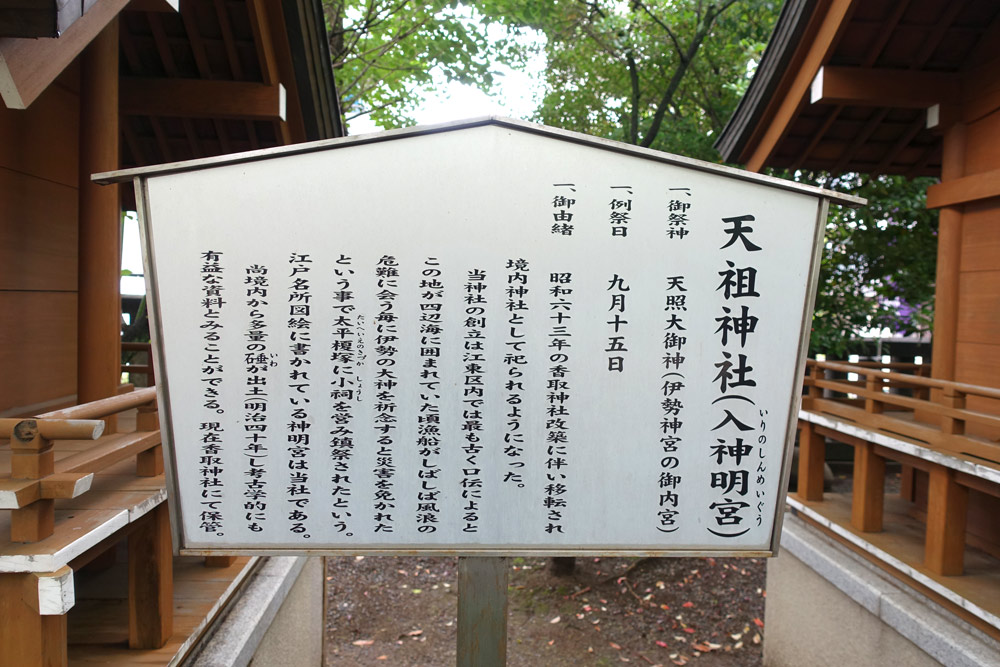 天祖神社(入神明宮)
いりのしんめいぐう
一、御祭神 天照大御神(伊勢神宮の御内宮)
一、例祭日 九月十五日
一、御由緒
昭和六十三年の香取神社改築に伴い移転され
境内神社として祀られるようになった。
当神社の創立は江東区内では最も古く口伝によると
この地が四辺海に囲まれていた頃漁船がしばしば風浪の
危難に会う毎に伊勢の大神を祈念すると災害を免かれた
という事で太平榎塚に小祠を営み鎮祭されたという。
たいへいえのきづか しょうし
江戸名所図絵に書かれている神明宮は当社である。
尚境内から多量の硾が出土(明治四十年)し考古学的にも
いわ
有益な資料とみることができる。現在香取神社にて保管。